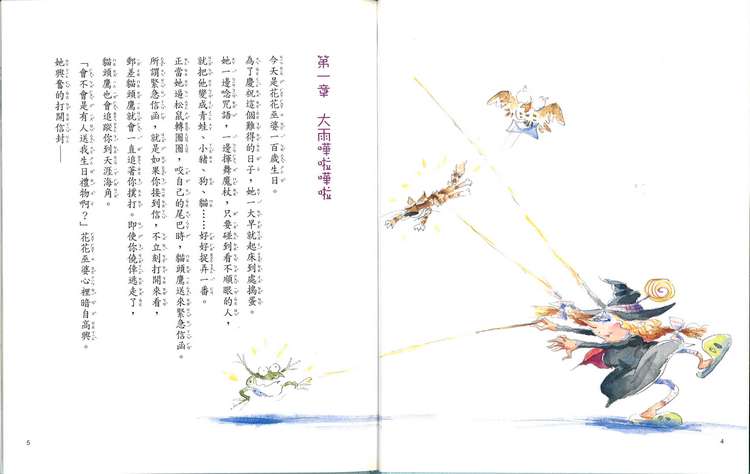 第一章 大雨嘩啦嘩啦
今天是花花巫婆一百歲生日。
為了慶祝這個難得的日子，她一大早就起床到處搗蛋。
她一邊唸咒語，一邊揮舞魔杖，只要碰到看不順眼的人，
就把他變成青蛙、小豬、狗、貓……好好捉弄一番。
正當她逼松鼠轉圈圈，咬自己的尾巴時，貓頭鷹送來緊急信函。
所謂緊急信函，就是如果你接到信，不立刻打開來看，
郵差貓頭鷹就會一直追著你撲打。即使你僥倖逃走了，
貓頭鷹也會追蹤你到天涯海角。
「會不會是有人送我生日禮物啊？」花花巫婆心裡暗自高興。
她興奮的打開信封──
5
4